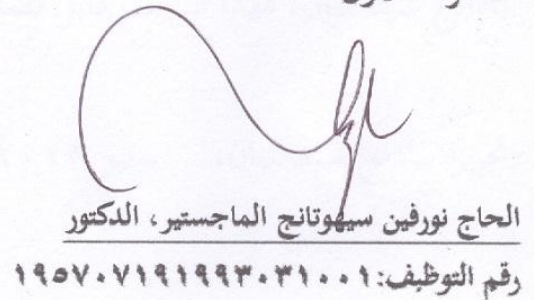 الحاج نورفين سيهوتانج الماجستير، الدكتور
رقم التوظيف: ١٩٥٧٠٧١٩١٩٩٣٠٣١٠٠١